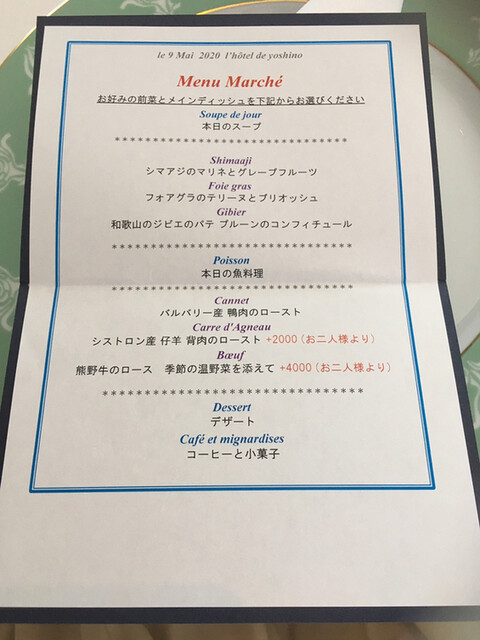 le 9 Mai 2020 l'hôtel de yoshino
Menu Marché
お好みの前菜とメインディッシュを下記からお選びください
Soupe de jour
本日のスープ
******************************
Shimaaji
シマアジのマリネとグレープフルーツ
Foie gras
フォアグラのテリーヌとブリオッシュ
Gibier
和歌山のジビエのパテ プルーンのコンフィチュール
******************************
Poisson
本日の魚料理
******************************
Cannet
バルバリー産 鴨肉のロースト
Carre d'Agneau
シストロン産 仔羊 背肉のロースト +2000 (お二人様より)
Bœuf
熊野牛のロース 季節の温野菜を添えて +4000 (お二人様より)
********************************
Dessert
デザート
Café et mignardises
コーヒーと小菓子